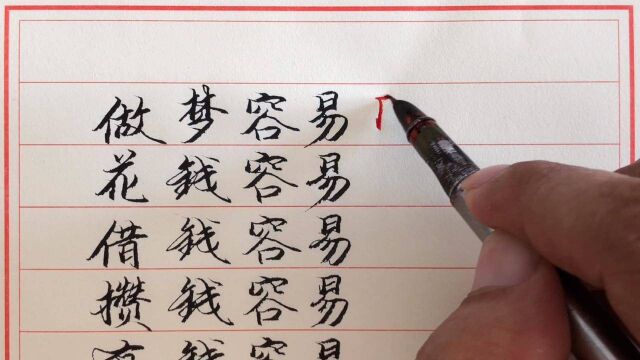 做梦容易
花钱容易
借钱容易
攒钱容易
有钱容易